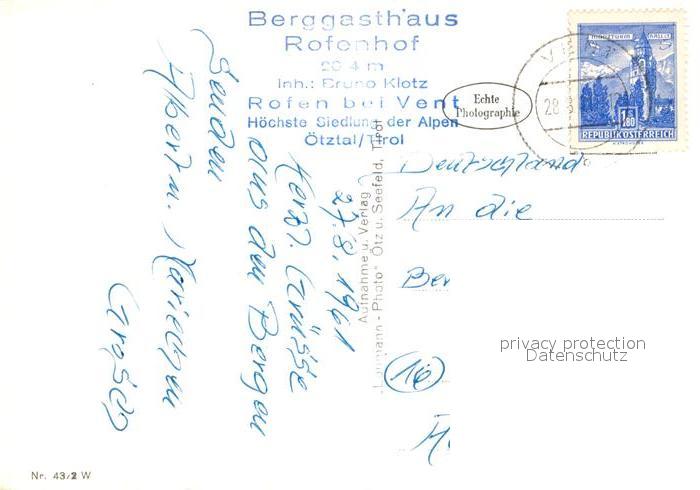 Berggasthaus
Rofenhof
2014 m
Inh.: Bruno Klotz
Rofen bei Vent
Höchste Siedlung der Alpen
Ötztal/Tirol
Echte
Photographie
MÜNZTURM HALL
S 1.80
REPUBLIK ÖSTERREICH
VENT
28.8
27.8.1961
Herzl. Grüsse
aus den Bergen
Senden
Albert u. Mariechen
Aufnahme u. Verlag
"Lohmann - Photo" Ötz u. Seefeld, Tirol
Deutschland
An die
(16)
privacy protection
Datenschutz
Nr. 43/2 W